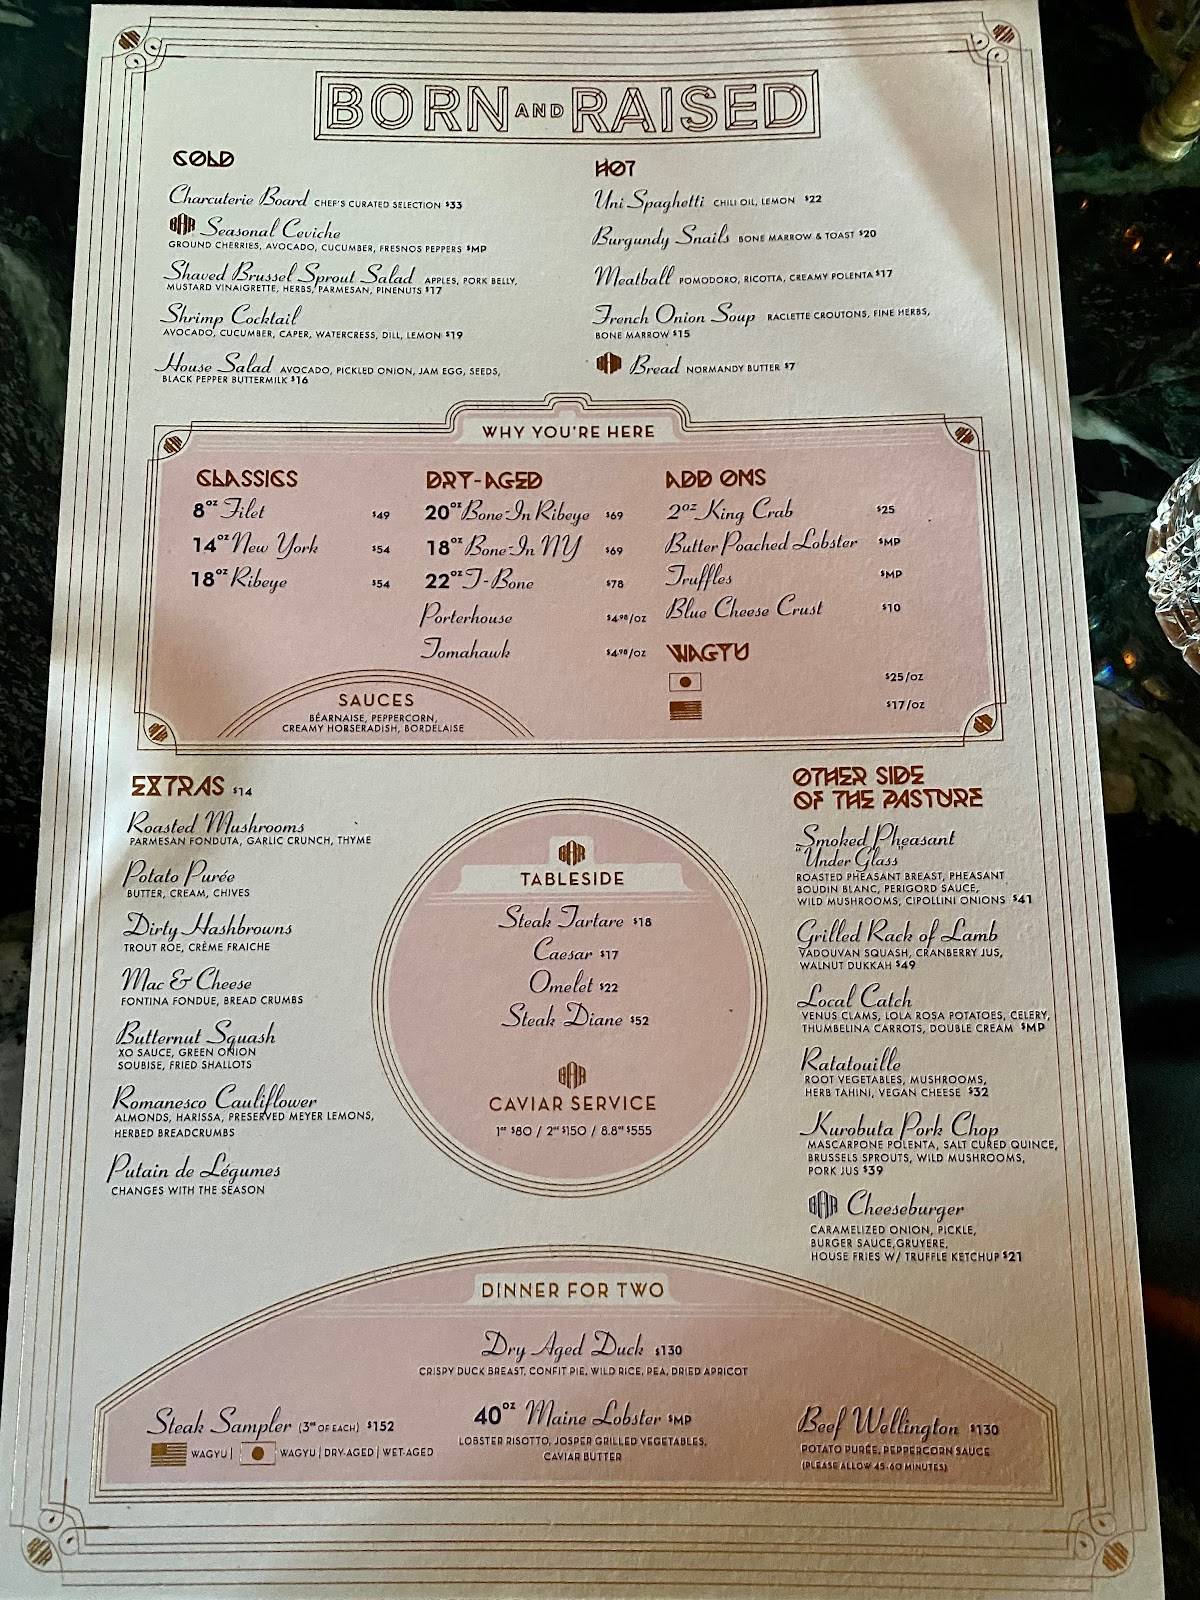 BORN AND RAISED
COLD
Charcuterie Board CHEF'S CURATED SELECTION $33
BAR Seasonal Ceviche
GROUND CHERRIES, AVOCADO, CUCUMBER, FRESNOS PEPPERS $MP
Shaved Brussel Sprout Salad APPLES, PORK BELLY,
MUSTARD VINAIGRETTE, HERBS, PARMESAN, PINENUTS $17
Shrimp Cocktail
AVOCADO, CUCUMBER, CAPER, WATERCRESS, DILL, LEMON $19
House Salad AVOCADO, PICKLED ONION, JAM EGG, SEEDS,
BLACK PEPPER BUTTERMILK $16
HOT
Uni Spaghetti CHILI OIL, LEMON $22
Burgundy Snails BONE MARROW & TOAST $20
Meatball POMODORO, RICOTTA, CREAMY POLENTA $17
French Onion Soup RACLETTE CROUTONS, FINE HERBS,
BONE MARROW $15
BAR Bread NORMANDY BUTTER $7
WHY YOU'RE HERE
CLASSICS
8oz Filet $49
14oz New York $54
18oz Ribeye $54
DRY-AGED
20oz Bone-In Ribeye $69
18oz Bone-In NY $69
22oz T-Bone $78
Porterhouse $4.98/OZ
Tomahawk $4.98/OZ
ADD ONS
2oz King Crab $25
Butter Poached Lobster $MP
Truffles $MP
Blue Cheese Crust $10
WAGYU
$25/OZ
$17/OZ
SAUCES
BÉARNAISE, PEPPERCORN,
CREAMY HORSERADISH, BORDELAISE
EXTRAS $14
Roasted Mushrooms
PARMESAN FONDUTA, GARLIC CRUNCH, THYME
Potato Purée
BUTTER, CREAM, CHIVES
Dirty Hashbrowns
TROUT ROE, CRÈME FRAICHE
Mac & Cheese
FONTINA FONDUE, BREAD CRUMBS
Butternut Squash
XO SAUCE, GREEN ONION
SOUBISE, FRIED SHALLOTS
Romanesco Cauliflower
ALMONDS, HARISSA, PRESERVED MEYER LEMONS,
HERBED BREADCRUMBS
Putain de Légumes
CHANGES WITH THE SEASON
BAR
TABLESIDE
Steak Tartare $18
Caesar $17
Omelet $22
Steak Diane $52
BAR
CAVIAR SERVICE
1oz $80 / 2oz $150 / 8.8oz $555
OTHER SIDE
OF THE PASTURE
Smoked Pheasant
"Under Glass"
ROASTED PHEASANT BREAST, PHEASANT
BOUDIN BLANC, PERIGORD SAUCE,
WILD MUSHROOMS, CIPOLLINI ONIONS $41
Grilled Rack of Lamb
VADOUVAN SQUASH, CRANBERRY JUS,
WALNUT DUKKAH $49
Local Catch
VENUS CLAMS, LOLA ROSA POTATOES, CELERY,
THUMBELINA CARROTS, DOUBLE CREAM $MP
Ratatouille
ROOT VEGETABLES, MUSHROOMS,
HERB TAHINI, VEGAN CHEESE $32
Kurobuta Pork Chop
MASCARPONE POLENTA, SALT CURED QUINCE,
BRUSSELS SPROUTS, WILD MUSHROOMS,
PORK JUS $39
BAR Cheeseburger
CARAMELIZED ONION, PICKLE,
BURGER SAUCE, GRUYERE,
HOUSE FRIES W/ TRUFFLE KETCHUP $21
DINNER FOR TWO
Dry Aged Duck $130
CRISPY DUCK BREAST, CONFIT PIE, WILD RICE, PEA, DRIED APRICOT
Steak Sampler (3oz OF EACH) $152
WAGYU | WAGYU | DRY-AGED | WET-AGED
40oz Maine Lobster $MP
LOBSTER RISOTTO, JOSPER GRILLED VEGETABLES,
CAVIAR BUTTER
Beef Wellington $130
POTATO PURÉE, PEPPERCORN SAUCE
(PLEASE ALLOW 45-60 MINUTES)